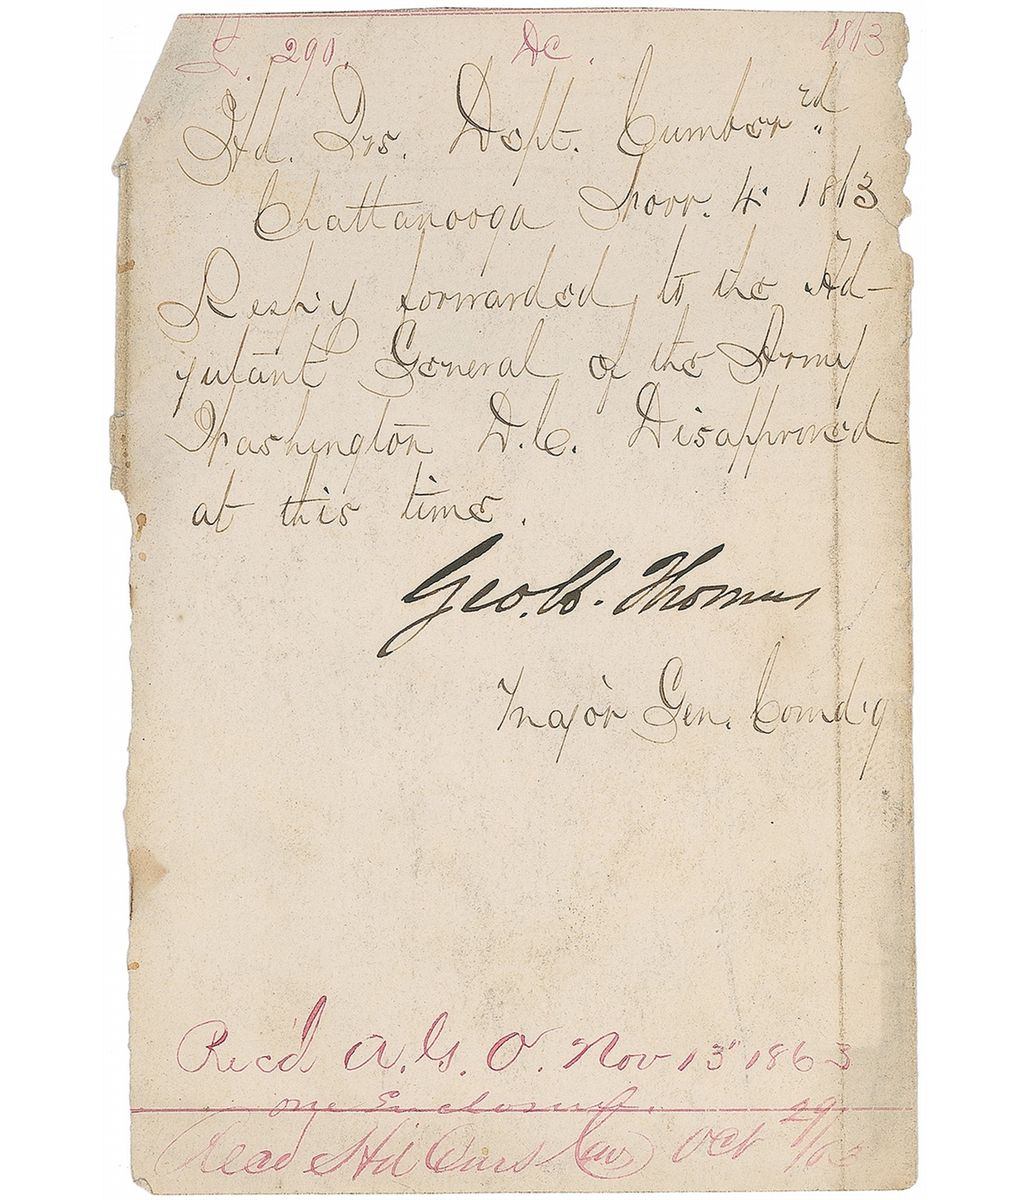 290. DC. 1863
Hd. Qrs. Dept. Cumberd.
Chattanooga Novr. 4. 1863
Resp'y forwarded to the Ad-
jutant General of the Army
Washington D.C. Disapproved
at this time.
Geo. H. Thomas
Major Gen. Comd'g
Rec'd A. G. O. Nov 13" 1863
one Enclosure.
Recd Hd Qurs Cav Oct 29/63